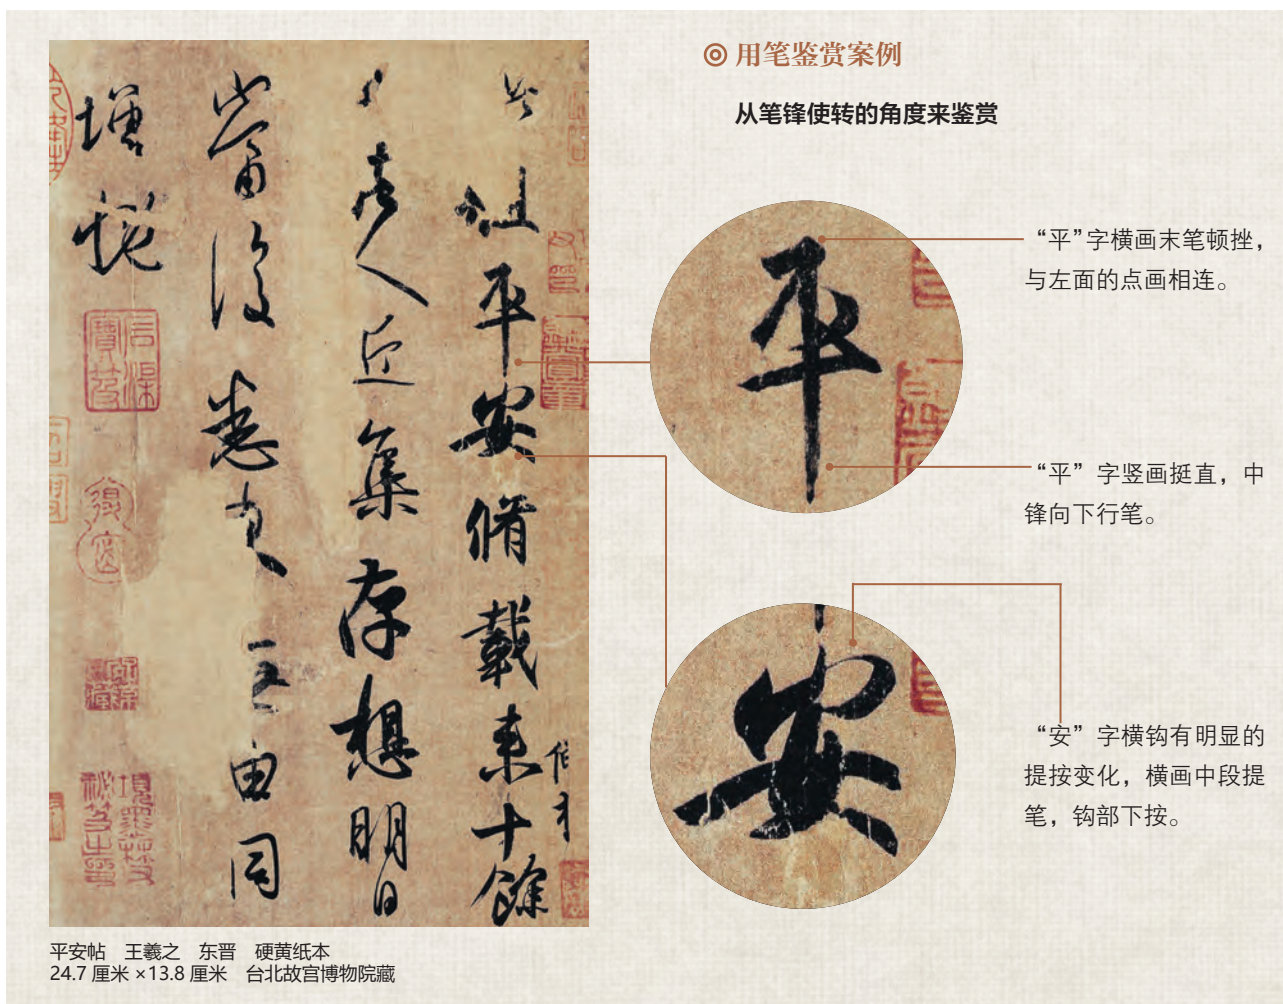 用笔鉴赏案例
从笔锋使转的角度来鉴赏
此
仙
平
安
脩
载
来
十
餘
人
近
集
存
想
明
日
當
復
悉
由
同
增
慨
“平”字横画末笔顿挫，
与左面的点画相连。
“平” 字竖画挺直，中
锋向下行笔。
“安” 字横钩有明显的
提按变化，横画中段提
笔，钩部下按。
平安帖 王羲之 东晋 硬黄纸本
24.7 厘米 ×13.8 厘米 台北故宫博物院藏